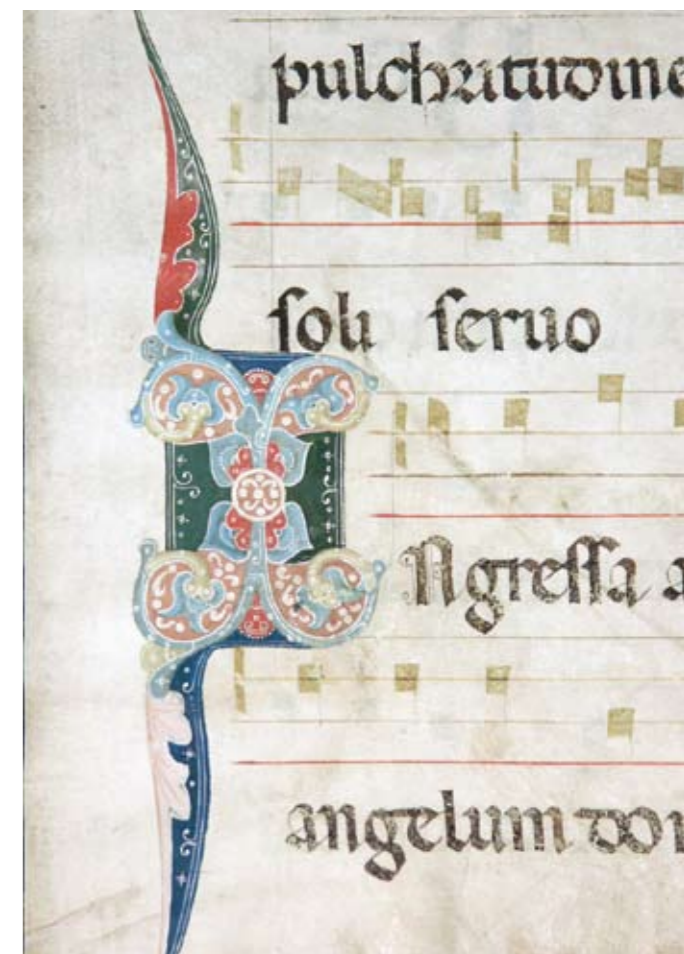 pulchritudine
soli seruo
INgressa a
angelum do